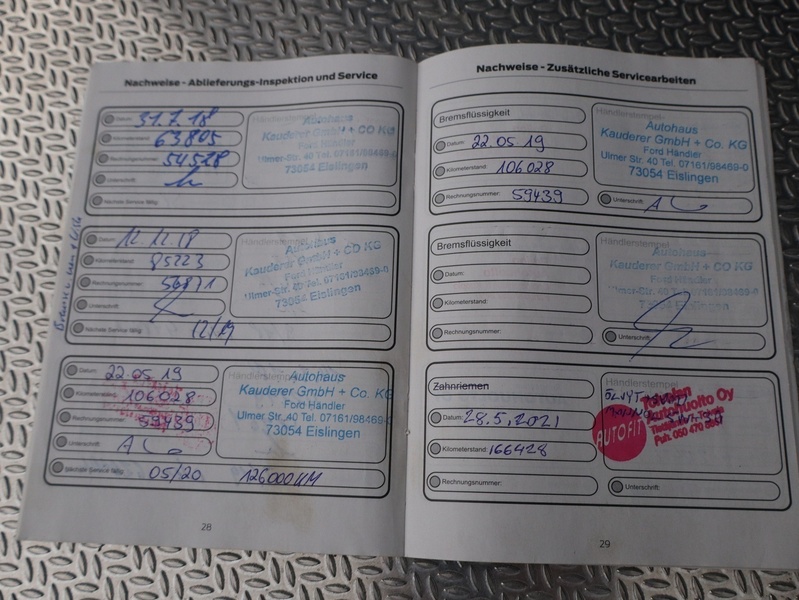 Nachweise - Ablieferungs-Inspektion und Service
Datum: 31.7.18
Kilometerstand: 63805
Rechnungsnummer: 54528
Unterschrift:
Nächste Service fällig:
Händlerstempel
Autohaus
Kauderer GmbH + CO KG
Ford Händler
Ulmer-Str. 40 Tel. 07161/98469-0
73054 Eislingen
Datum: 12.12.18
Kilometerstand: 85223
Rechnungsnummer:
Unterschrift:
Nächste Service fällig: 12/19
Händlerstempel
Autohaus
Kauderer GmbH + CO KG
Ford Händler
Ulmer-Str. 40 Tel. 07161/98469-0
73054 Eislingen
Datum: 22.05 19
Kilometerstand: 106028
Rechnungsnummer: 59439
Unterschrift:
Nächste Service fällig: 05/20 126000KM
Händlerstempel
Autohaus
Kauderer GmbH + Co. KG
Ford Händler
Ulmer Str. 40 Tel. 07161/98469-0
73054 Eislingen
28
Nachweise - Zusätzliche Servicearbeiten
Bremsflüssigkeit
Datum: 22.05 19
Kilometerstand: 106028
Rechnungsnummer: 59439
Händlerstempel
Autohaus
Kauderer GmbH + Co. KG
Ford Händler
Ulmer Str. 40 Tel. 07161/98469-0
73054 Eislingen
Unterschrift:
Bremsflüssigkeit
Datum:
Kilometerstand:
Rechnungsnummer:
Händlerstempel
Autohaus
Kauderer GmbH + CO KG
Ford Händler
Ulmer-Str. 40 Tel. 07161/98469-0
73054 Eislingen
Unterschrift:
Zahnriemen
Datum: 28.5.2021
Kilometerstand: 166428
Rechnungsnummer:
Händlerstempel
AUTOFIT
Autohuolto Oy
Unterschrift:
29